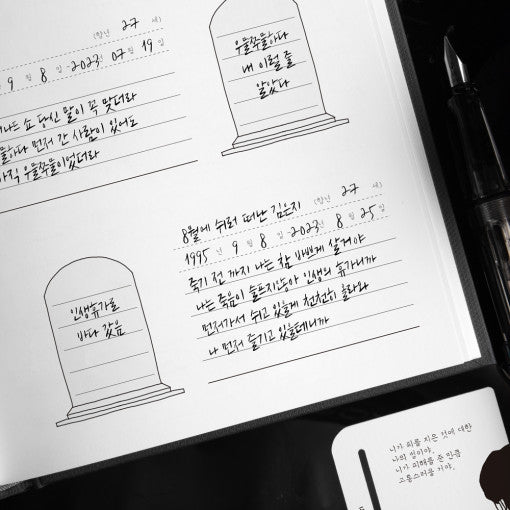 (향년 27 세)
9 월 8 일 - 2023년 07 월 19 일
나는 쇼 당신 말이 꼭 맞더라
먼저 간 사람이 있어도
우물쭈물이었더라
우물쭈물하다
내 이럴 줄
알았다
8월에 쉬러 떠난 김은지 (향년 27 세)
1995 년 9 월 8 일 - 2023년 8 월 25 일
죽기 전 까지 나는 참 바쁘게 살거야
나는 죽음이 슬프지않아 인생의 휴가니까
먼저가서 쉬고 있을게 천천히 올라와
나 먼저 즐기고 있을테니까
인생휴가로
바다 갔음
니가 죄를 지은 것에 대한
나의 벌이야.
니가 피해를 준 만큼
고통스러울 거야.